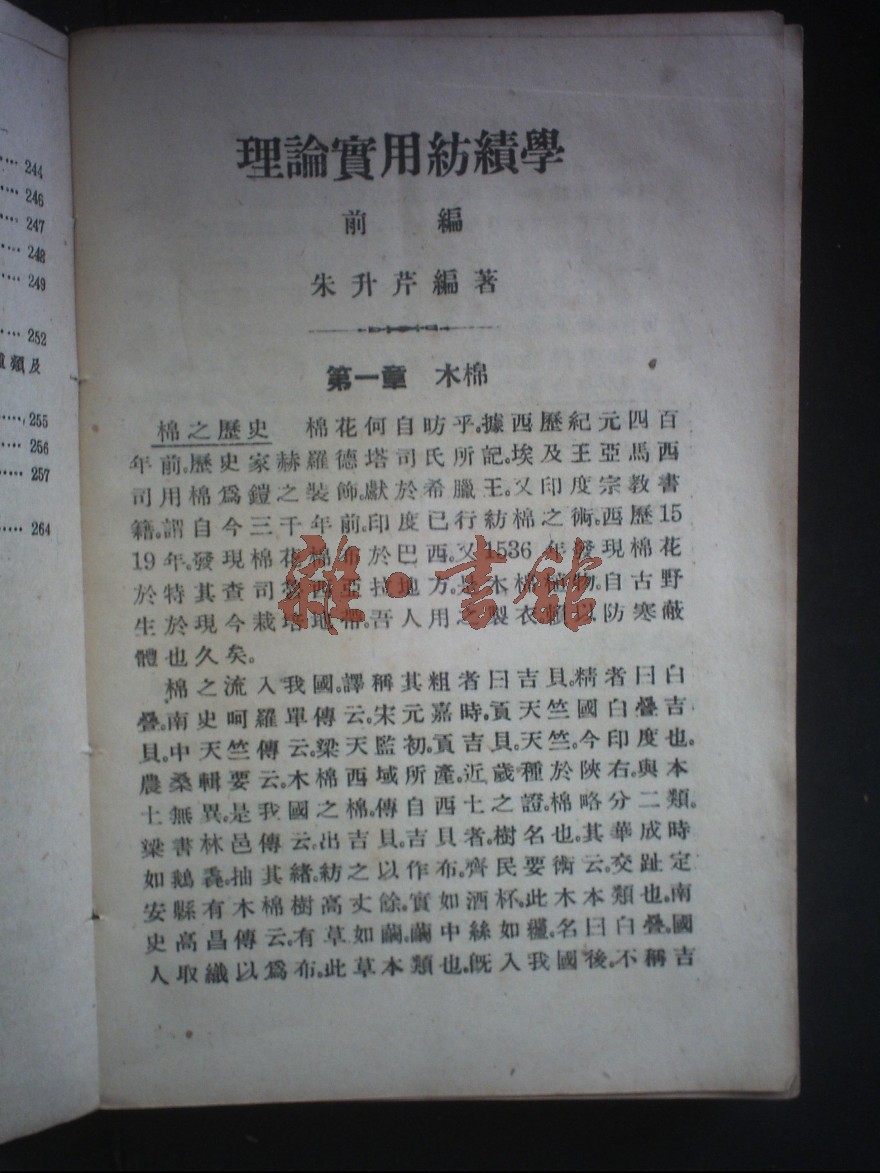 244
246
247
248
249
252
類及
255
256
257
264
理論實用紡績學
前編
朱升芹編著
第一章 木棉
棉之歷史 棉花何自昉乎。據西歷紀元四百
年前。歷史家赫羅德塔司氏所記。埃及王亞馬西
司用棉爲鎧之裝飾。獻於希臘王。又印度宗教書
籍。謂自今三千年前。印度已行紡棉之術。西歷15
19年。發現棉花棉布於巴西。又1536年發現棉花
於特其查司 西亞拉地方。是木棉植物。自古野
生於現今栽培地帶。吾人用之製衣賴以防寒蔽
體也久矣。
棉之流入我國。譯稱其粗者曰吉貝。精者曰白
疊。南史呵羅單傳云。宋元嘉時。貢天竺國白疊吉
貝。中天竺傳云。梁天監初。貢吉貝。天竺。今印度也。
農桑輯要云。木棉西域所產。近歲種於陝右。與本
土無異。是我國之棉。傳自西土之證。棉略分二類。
梁書林邑傳云。出吉貝。吉貝者。樹名也。其華成時
如鵝毳。抽其緒。紡之以作布。齊民要術云。交趾定
安縣有木棉樹高丈餘。實如酒杯。此木本類也。南
史高昌傳云。有草如繭。繭中絲如纑。名曰白疊。國
人取織以爲布。此草本類也。旣入我國後。不稱吉
雜·書館